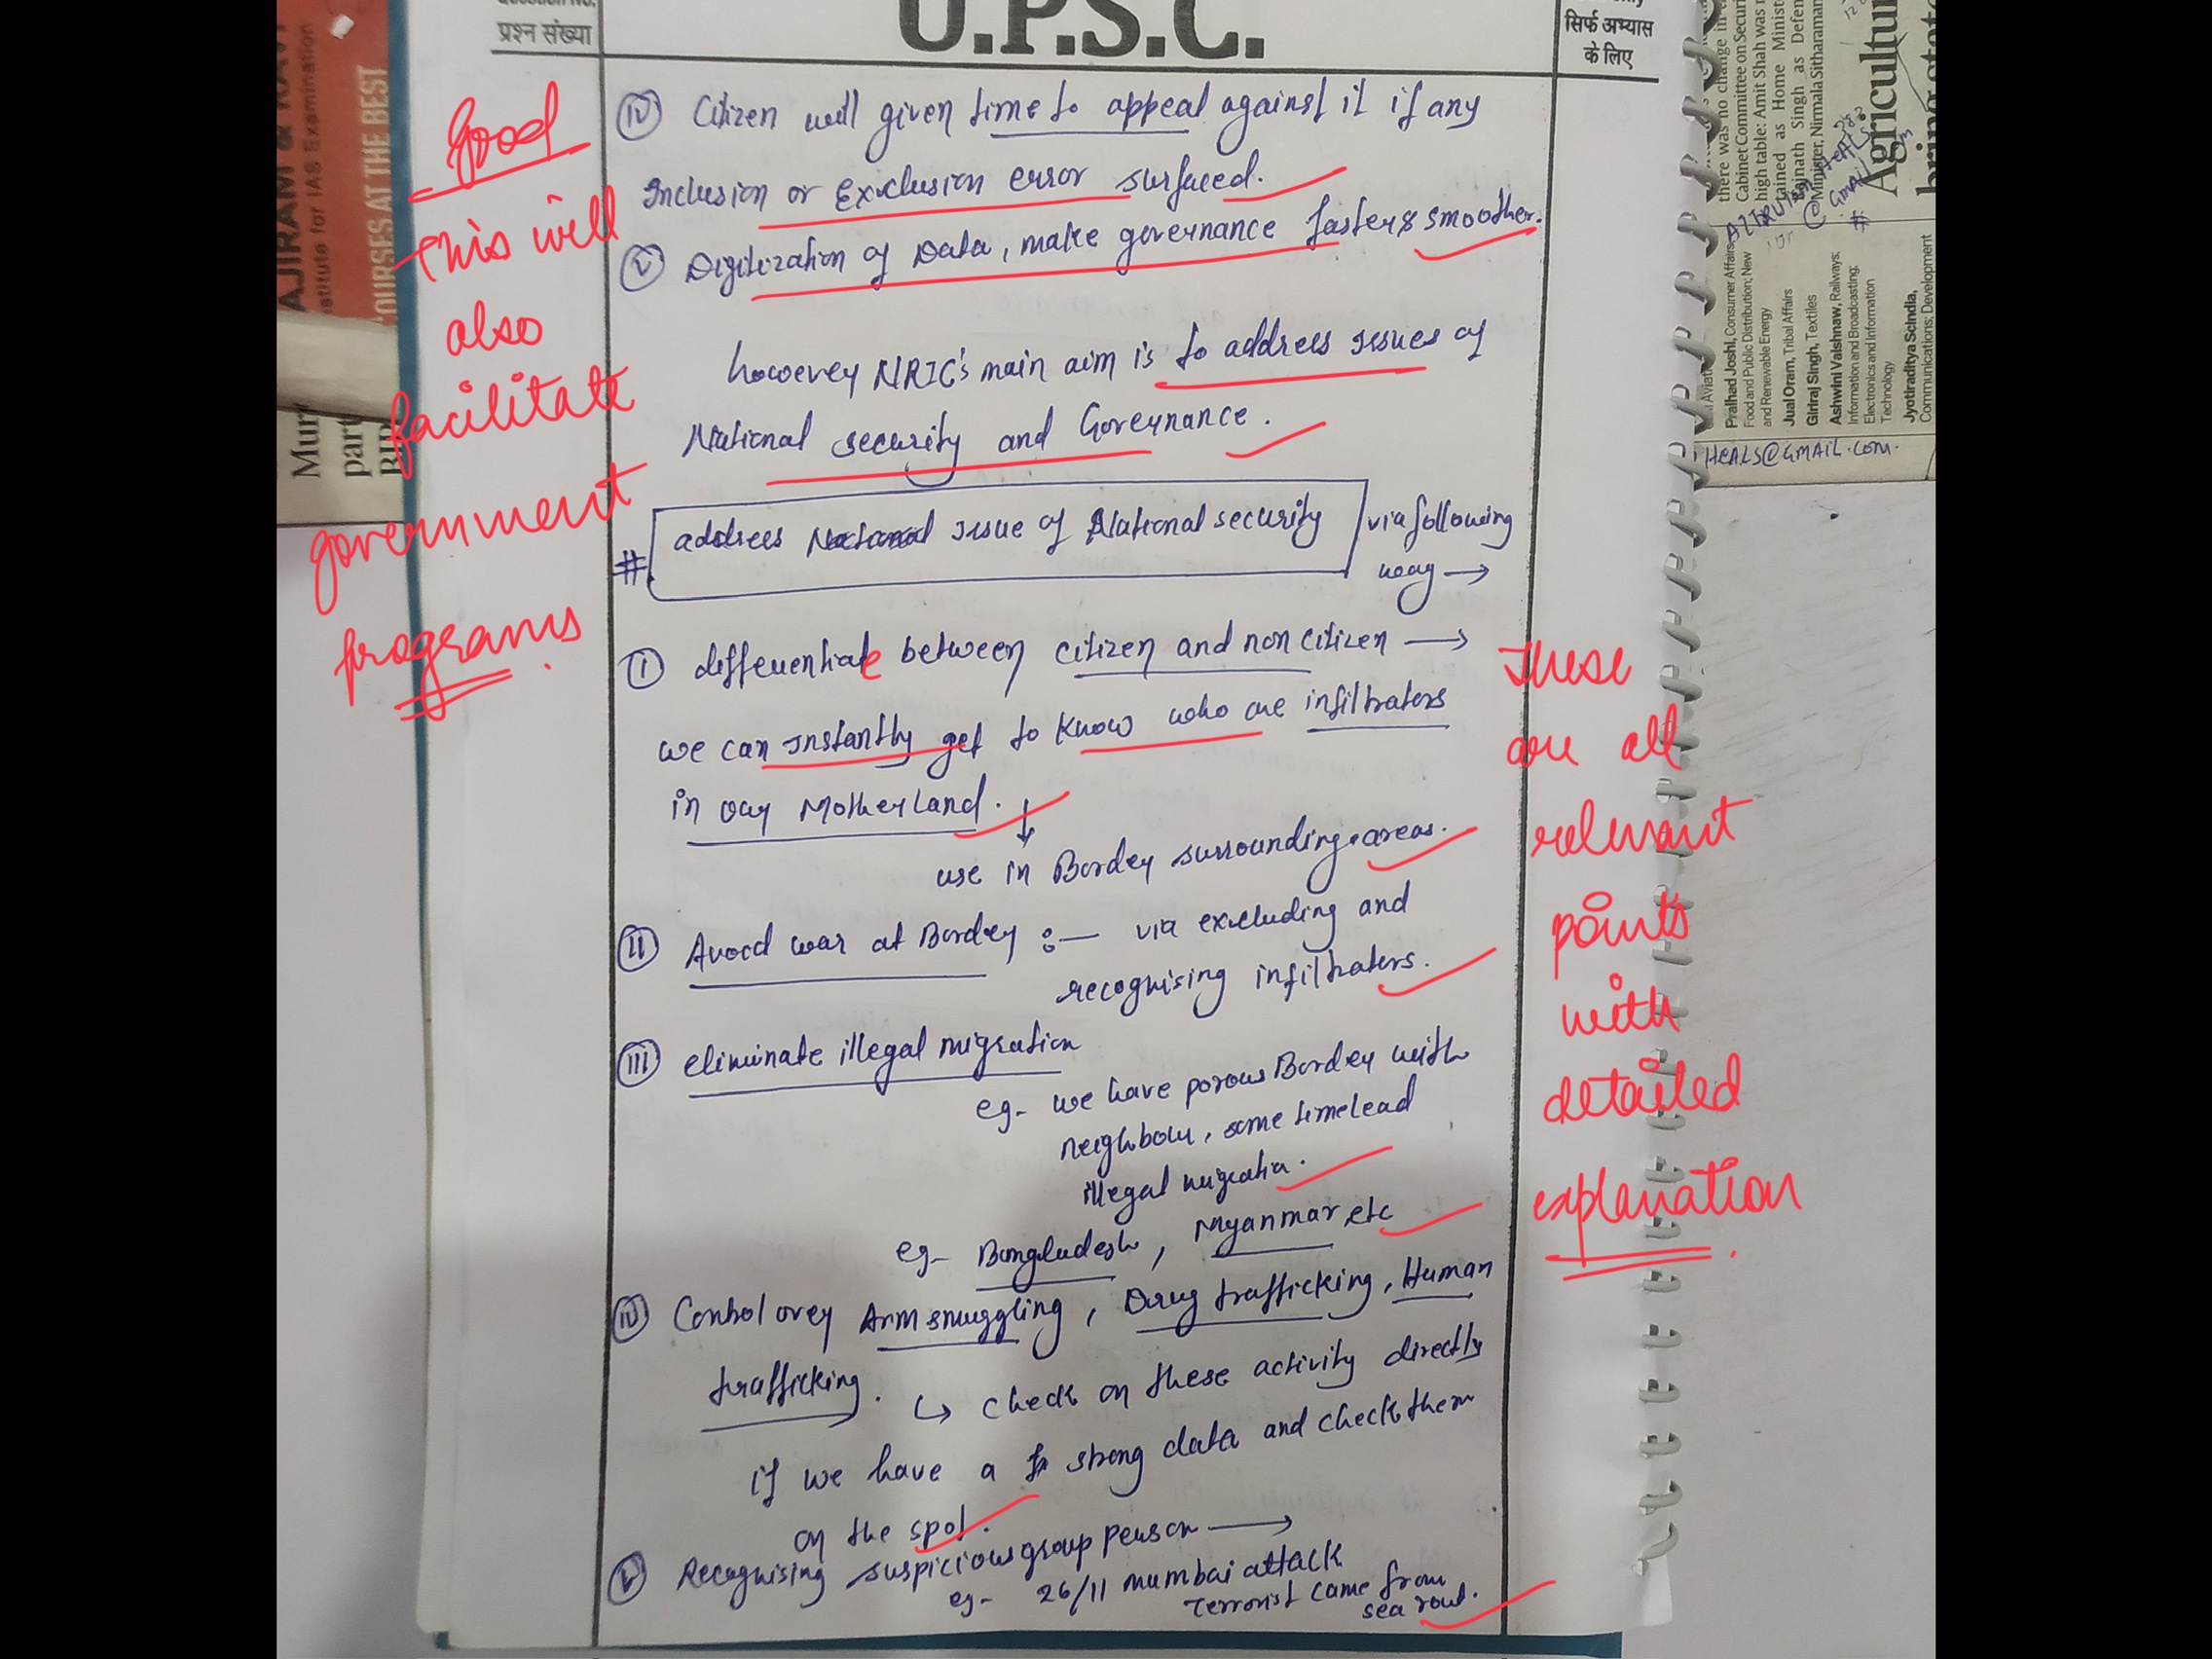 Question No.
प्रश्न संख्या
U.P.S.C.
सिर्फ अभ्यास
के लिए
(iv) Citizen will given time to appeal against it if any
Inclusion or Exclusion error surfaced.
(v) Digitization of Data, make governance faster & smoother.
however NRIC's main aim is to address issues of
National security and Governance.
# address National issue of National security via following
way →
(i) differentiate between citizen and non citizen →
we can instantly get to know who are infiltrators
in our Motherland.
↓
use in Border surrounding areas.
(ii) Avoid war at Border :— via excluding and
recognising infiltraters.
(iii) eliminate illegal migration
eg- we have porous Border with
neighbour, some time lead
illegal migratin.
eg- Bangladesh, Myanmar, etc
(iv) Control over Arm smuggling, Drug trafficking, Human
trafficking. ↳ check on these activity directly
if we have a strong data and check them
on the spot.
(v) Recognising suspicious group person →
eg- 26/11 mumbai attack
Terrorist came from
sea rout.
Good
This will
also
facilitate
government
programs.
These
are all
relevant
points
with
detailed
explanation.
AJIRAM & RAVI
Institute for IAS Examination
COURSES AT THE BEST
Mur
part
there was no change in
Cabinet Committee on Securi
high table: Amit Shah was r
tained as Home Minist
Rajnath Singh as Defen
Minister, Nirmala Sitharaman
Agricultur
@GMAIL
Pralhad Joshi, Consumer Affairs,
Food and Public Distribution; New
and Renewable Energy
Jual Oram, Tribal Affairs
Giriraj Singh, Textiles
Ashwini Vaishnaw, Railways;
Information and Broadcasting;
Electronics and Information
Technology
Jyotiraditya Scindia,
Communications; Development
HEALS@GMAIL.COM.